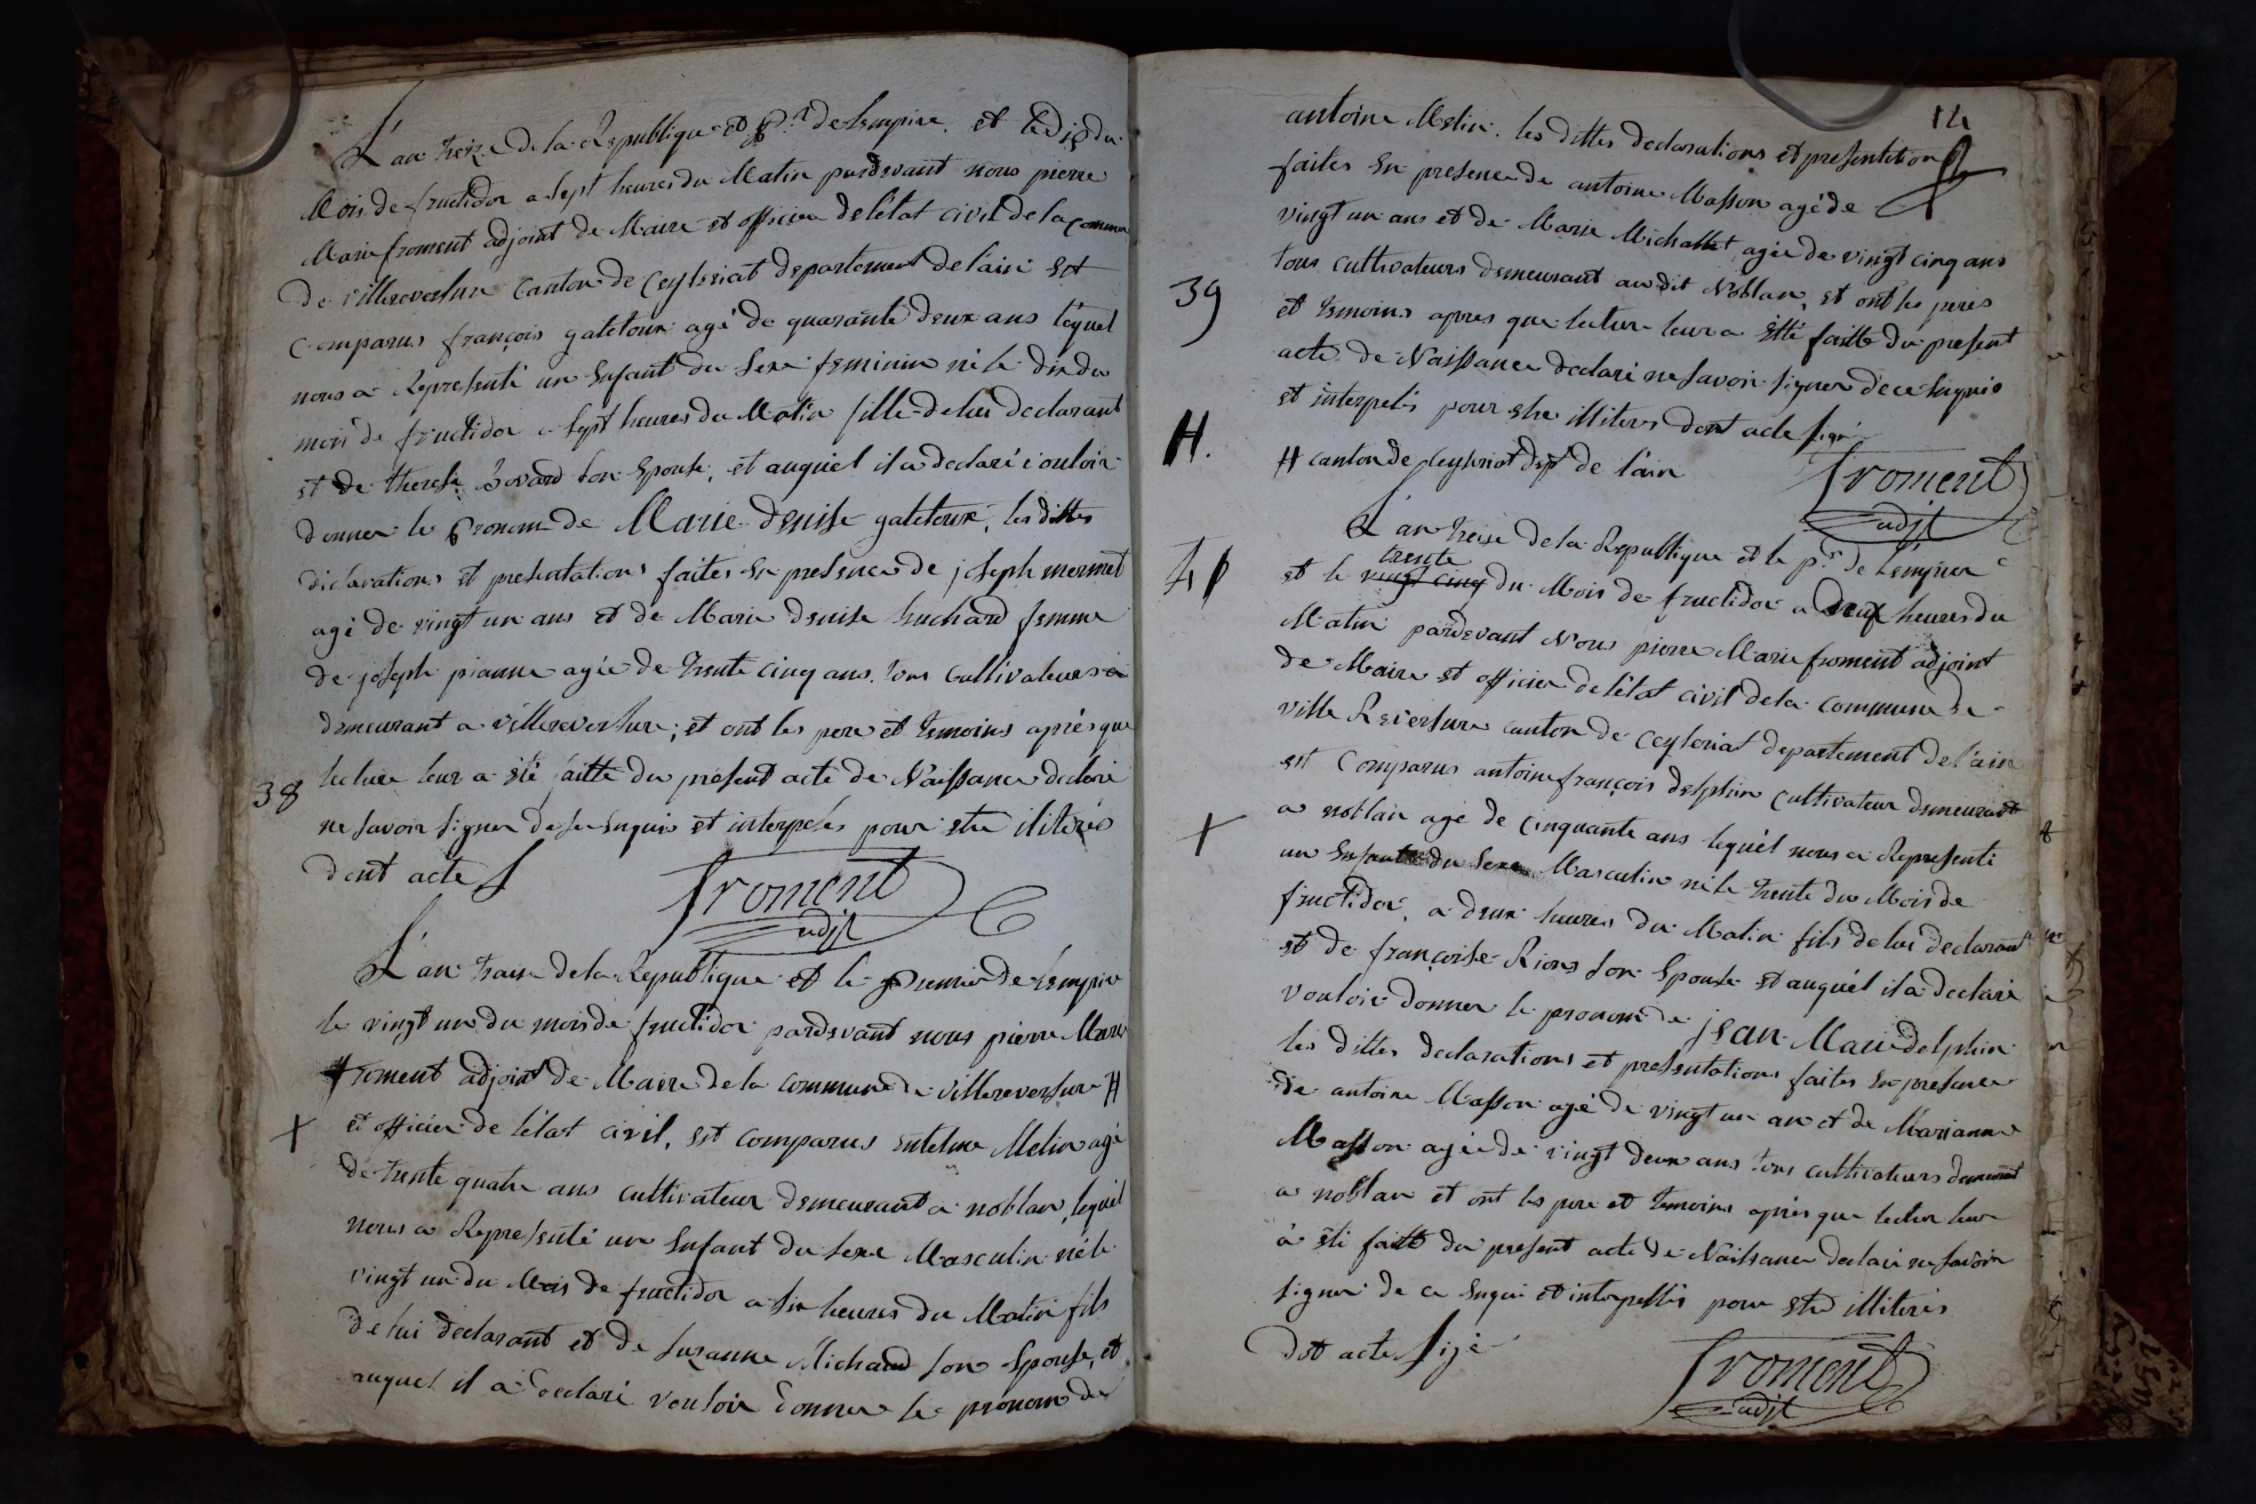 L'an treize de la Republique et p.r de Lempire, et le dix du
Mois de fructidor a sept heures du Matin pardevant nous pierre
Marie froment adjoint de Maire et officier de l'état civil de la commune
de villereversure canton de Ceyseriat departement de l'ain est
comparus françois galetoux agé de quarante deux ans léquel
nous a Representé un Enfant du sexe feminin né le dix du
mois de fructidor a sept heures du Matin fille de lui declarant
et de therese Bovard son Epouse, et auquel il a declaré vouloir
donner le pronom de Marie denise galetoux, les dittes
déclarations et presentations faites En presence de joseph mermet
agé de vingt un ans et de Marie denise huchard femme
de joseph pianne agée de trente cinq ans. tous cultivateurs
demeurant a villereversure; et ont les pere et temoins aprés que
38
lecture leur a été faitte du présent acte de Naissance declaré
ne savoir signer de ce Enquis et interpelés pour etre ilitérés
dont acte
froment
adjt
L'an traize de la Republique et le premier de Lempire
le vingt un du mois de fructidor pardevant nous pierre Marie
froment adjoint de Maire de la commune de villereversure H
X
et officier de l'état civil, est comparus entelme Melin agé
de trente quatre ans cultivateur demeurant a noblan, lequel
nous a Representé un Enfant du sexe Masculin né le
vingt un du Mois de fructidor a six heures du Matin fils
de lui declarant et de suzanne Michaud son Epouse, et
auquel il a declaré vouloir donner le pronom de
14
antoine Melin. les dittes declarations et presentation
faites En presence de antoine Masson agé de
vingt un ans et de Marie Michallet agée de vingt cinq ans
39
tous cultivateurs demeurant au dit Noblan, et ont les peres
et temoins apres que lecture leur a Etté faitte du present
acte de Naissance declaré ne savoir signer de ce Enquis
et interpelés pour etre illiteres dont acte signé
H.
H canton de Ceyseriat dept de l'ain
froment
adjt
L'an treise de la Republique et le p.r de Lempire
40
trente
et le vingt cinq du Mois de fructidor a deux heures du
Matin pardevant Nous pierre Marie froment adjoint
de Maire et officier de l'état civil de la commune de
ville Reversure canton de Ceyseriat departement de l'ain
est Comparus antoine françois delphin cultivateur demeurant
X
a noblan agé de cinquante ans lequél nous a Representé
un Enfant du sexe Masculin né le trente du Mois de
fructidor, a deux heures du Matin fils de lui declarant
et de françoise Rions son Epouse et auquél il a declaré
vouloir donner le pronom de jean Marie delphin
les dittes declarations et presentations faites En presence
de antoine Masson agé de vingt un an et de Marianne
Masson agée de vingt deux ans tous cultivateurs demeurant
a noblan et ont les pere et temoins aprés que lecture leur
à été faitte du present acte de Naissance declaré ne savoir
signer de ce Enqui et interpellés pour etre illiterés
dont acte signé
froment
adjt